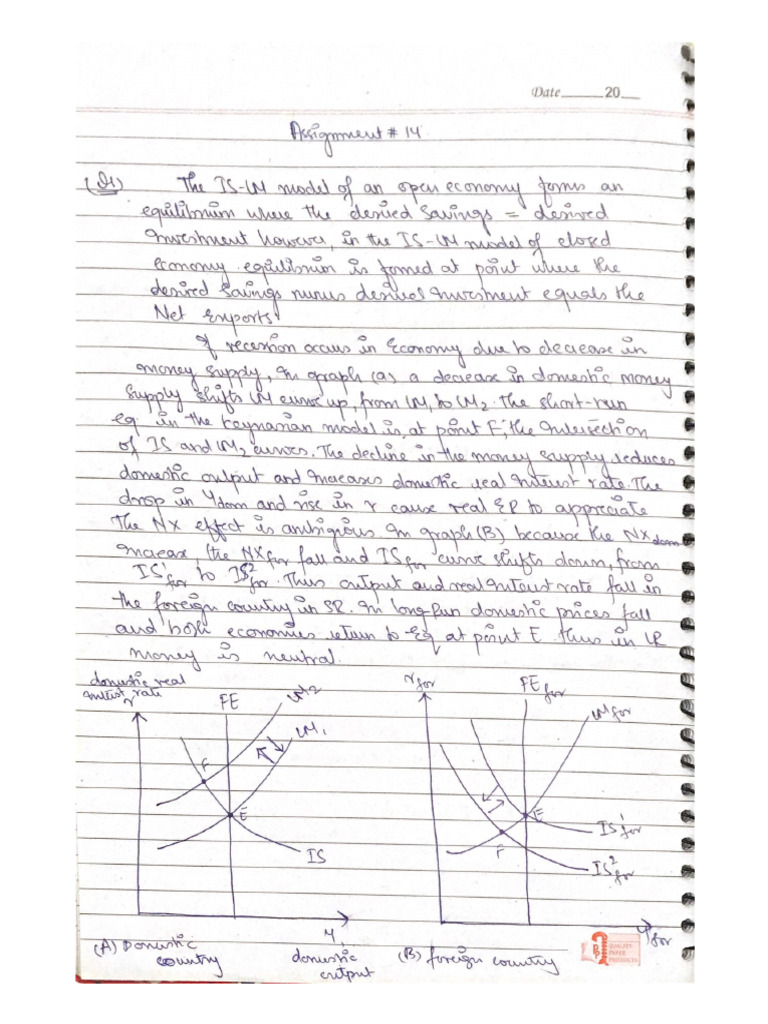 Date 20
Assignment # 14
(Q1) The IS-LM model of an open economy forms an
equilibrium where the desired Savings = desired
Investment however, in the IS-LM model of closed
economy equilibrium is formed at point where the
desired Savings minus desired Investment equals the
Net Exports.
If recession occurs in Economy due to decrease in
money supply, In graph (a) a decrease in domestic money
supply shifts LM curve up, from LM1 to LM2. The short-run
eq in the Keynesian model is at point F; the Intersection
of IS and LM2 curves. The decline in the money supply reduces
domestic output and increases domestic real Interest rate. The
drop in Ydom and rise in r cause real ER to appreciate
The NX effect is ambigious. In graph (B) because the NXdom
increase, the NXfor fall and ISfor curve shifts down, from
IS¹for to IS²for. Thus output and real interest rate fall in
the foreign country in SR. In long Run domestic prices fall
and both economies return to Eq at point E thus in LR
money is neutral.
domestic real
interest rate
r
FE
LM2
LM1
F
E
IS
Y
domestic
output
(A) Domestic
country
rfor
FEfor
LMfor
E
IS¹for
F
IS²for
Yfor
(B) foreign country
QUALITY
PAPER
PRODUCTS